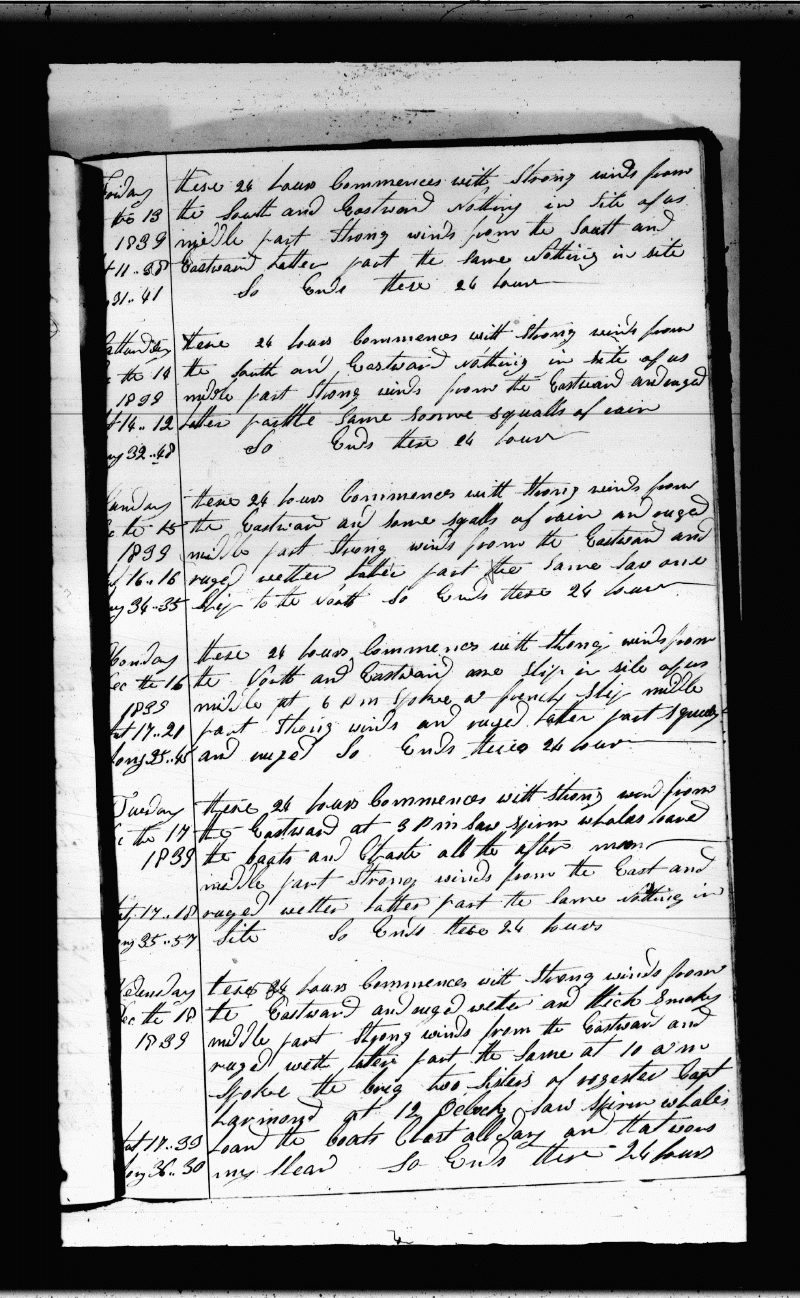 Friday these 24 hours Commences with Strong winds from
the 13 the South and Eastward Nothing in Site of us
1839 middle part Strong winds from the South and
11..38 Eastward Latter part the same Nothing in site
31..41 So Ends these 24 hours
Satturday these 24 hours Commences with Strong winds from
the 14 the South and Eastward Nothing in site of us
1839 middle part Strong winds from the Eastward and ruged
14..12 Latter part the same somme squalls of rain
32..48 So Ends these 24 hours
Sunday these 24 hours Commences with Strong winds from
the 15 the Eastward and some sqalls of rain and ruged
1839 middle part Strong winds from the Eastward and
16..16 ruged wether Latter part the same Saw one
34..35 Ship to the North So Ends these 24 hours
Monday these 24 hours Commences with Strong winds from
Dec the 16 the North and Eastward one Ship in site of us
1839 middle at 6 P m Spoke a french Ship middle
Lat 17..21 part Strong winds and ruged Latter part squaly
Long 35..45 and ruged So Ends these 24 hours
Tuesday these 24 hours Commences with Strong wind from
the 17 the Eastward at 3 P m Saw Spirm whales loared
1839 the boats and Chaste all the after noon
middle part Strong winds from the East and
17..18 ruged wether Latter part the same Nothing in
35..57 Site So Ends these 24 hours
Wedensday these 24 hours Commences with Strong winds from
Dec the 18 the Eastward and ruged wether and thick Smoky
1839 middle part Strong winds from the Eastward and
ruged weth Latter part the same at 10 a m
Spoke the brig two Sisters of rogester Capt
at 12 Oclock Saw Spirm whales
Lat 17..39 Loard the boats Chast all day and that wors
Long 36..30 my So Ends these 24 hours